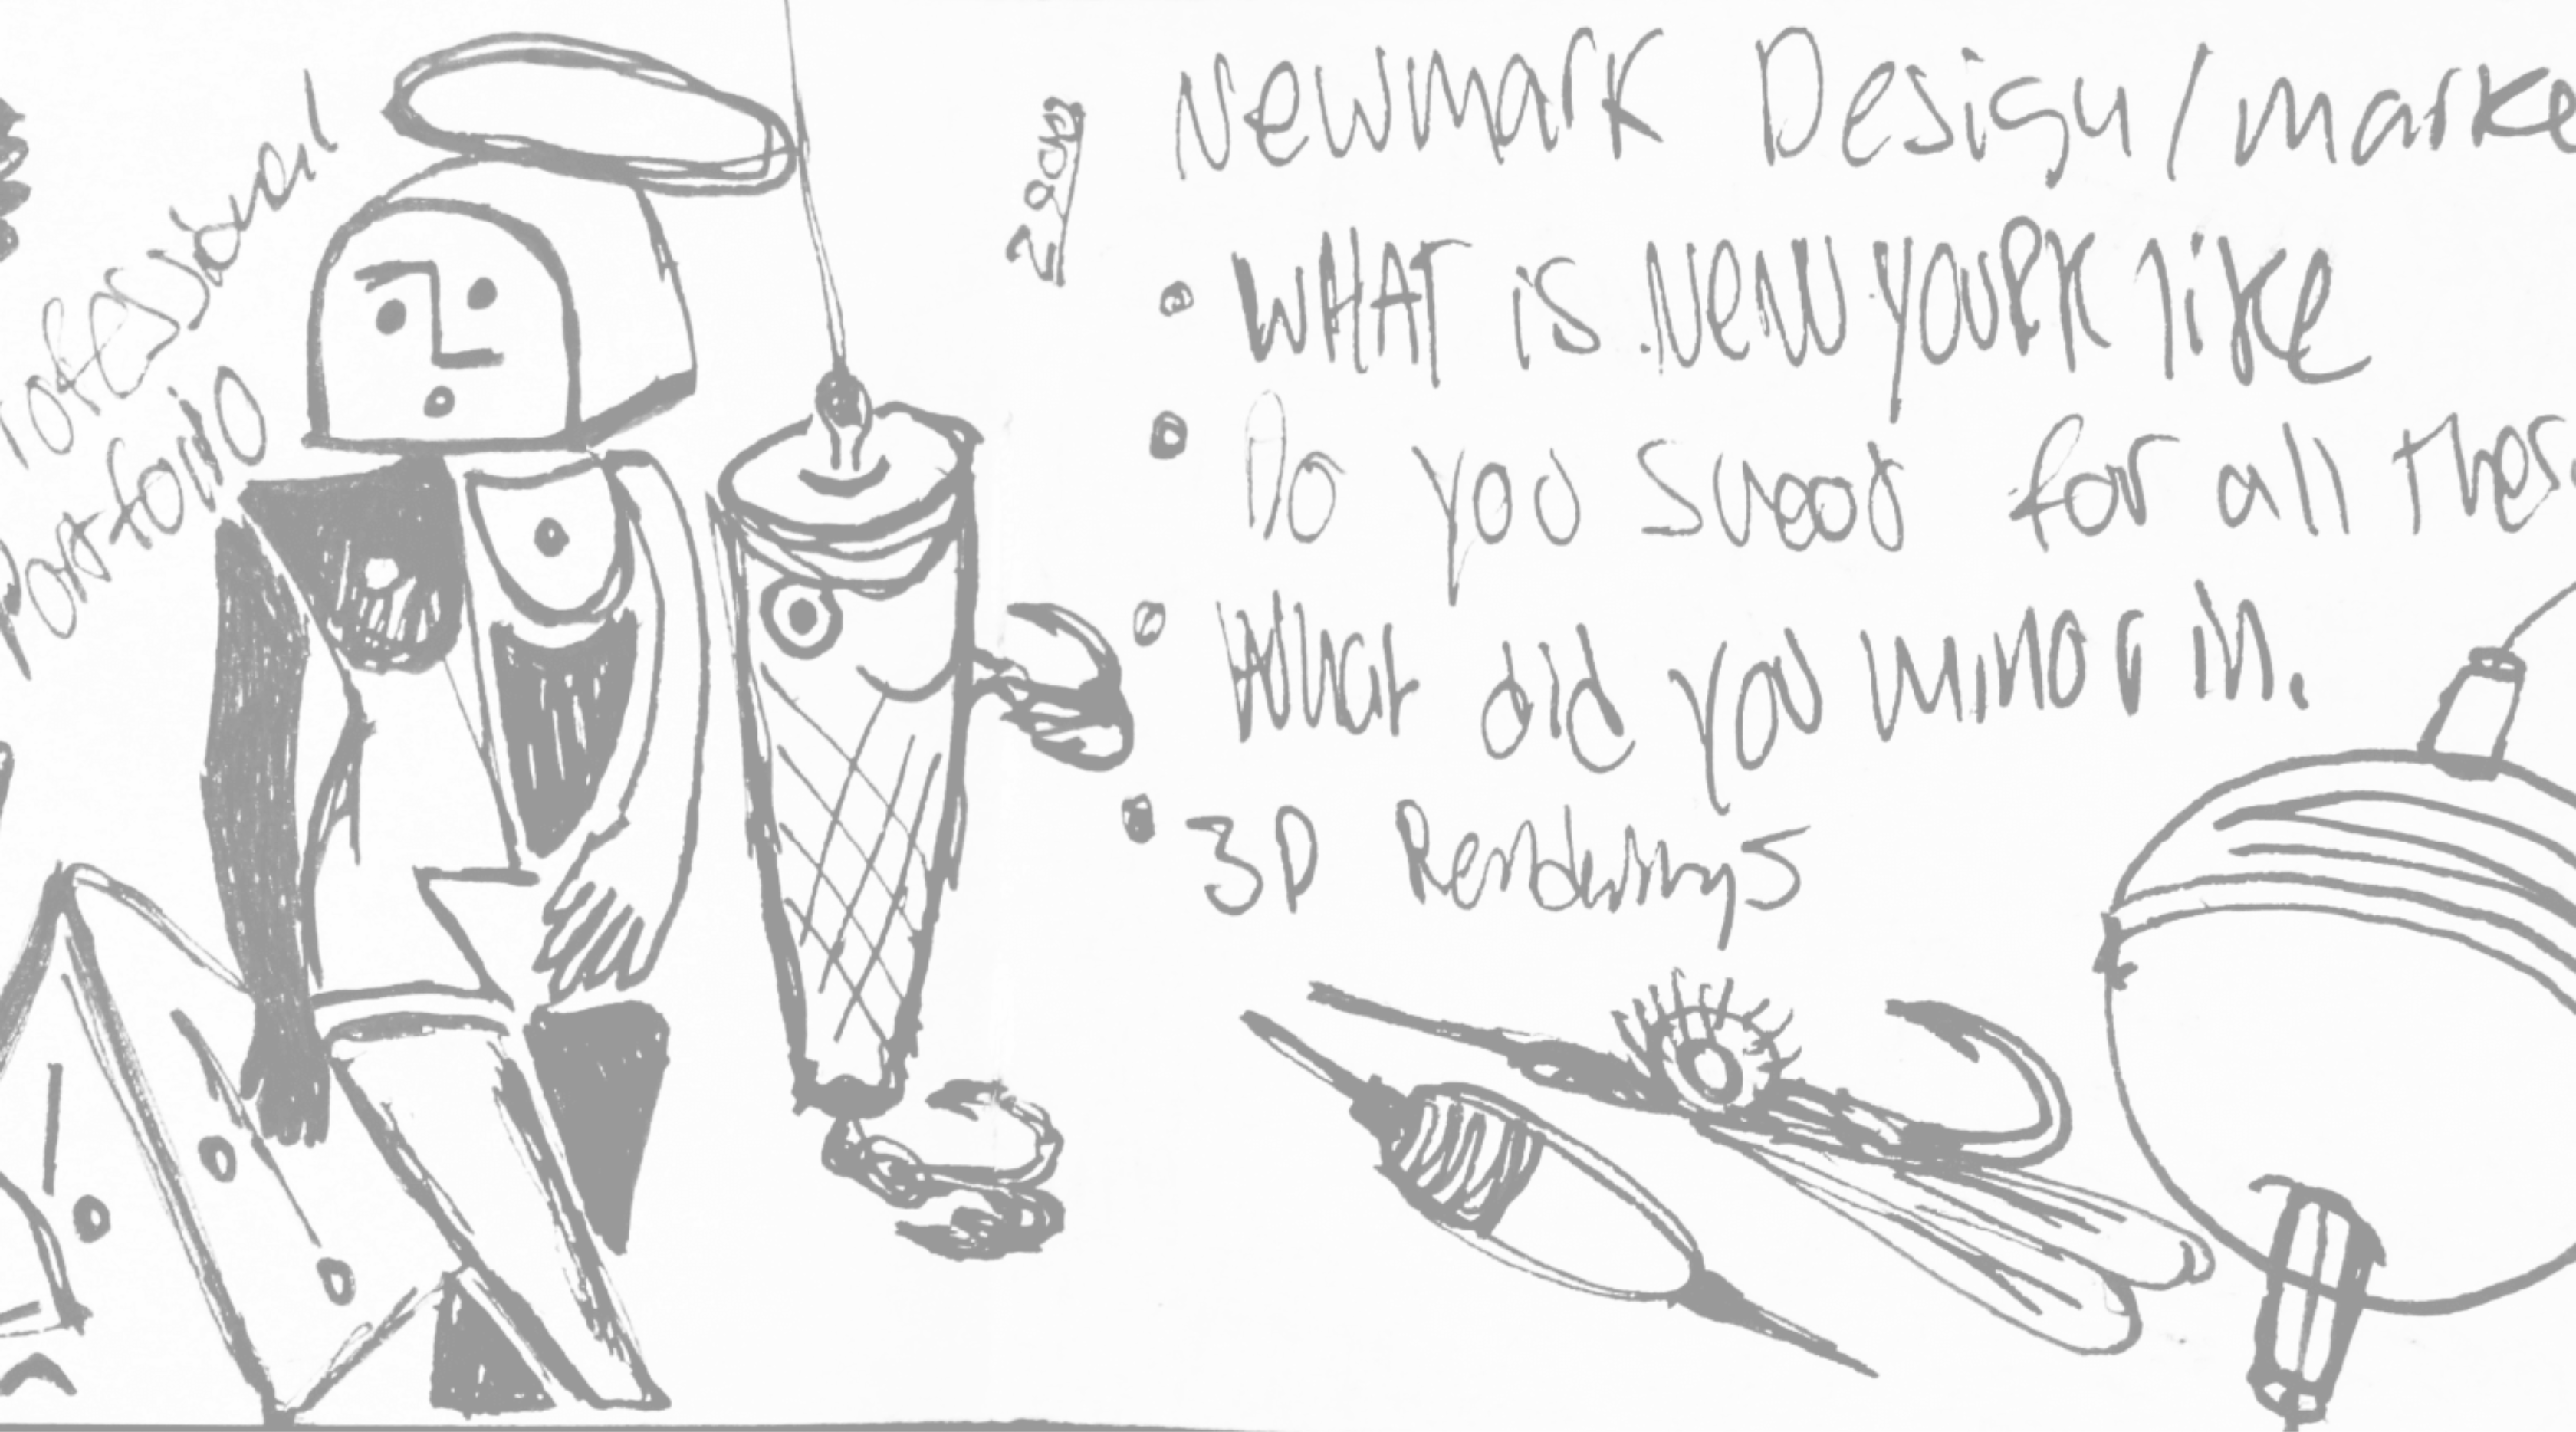 Portfolio
Newmark Design/marke
WHAT is New YOURK like
Do you sweat for all thes
What did you minor in.
3D Renderings